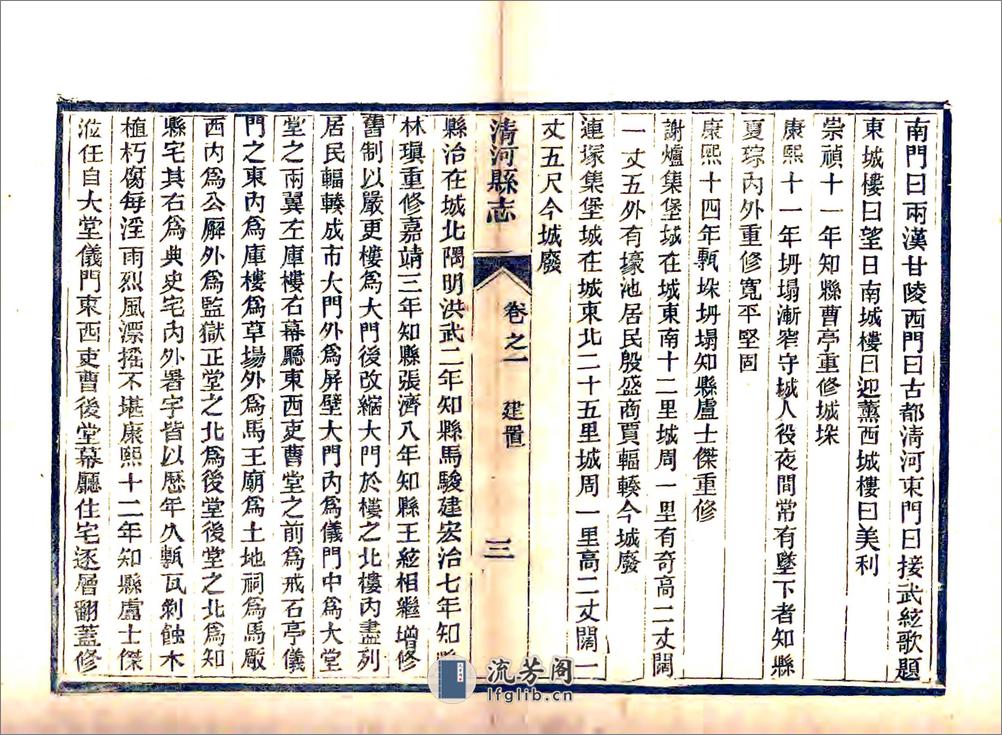 南門曰兩漢甘陵西門曰古都清河東門曰接武絃歌題
東城樓曰望日南城樓曰迎薰西城樓曰美利
崇禎十一年知縣曹亭重修城垛
康熙十一年坍塌漸窄守城人役夜間常有墜下者知縣
夏琮內外重修寬平堅固
康熙十四年甎垛坍塌知縣盧士傑重修
謝爐集堡城在城東南十二里城周一里有奇高二丈闊
一丈五外有壕池居民殷盛商賈輻輳今城廢
連塚集堡城在城東北二十五里城周一里高二丈闊一
丈五尺今城廢
清河縣志
卷之一 建置
三
縣治在城北隅明洪武二年知縣馬駿建宏治七年知縣
林瑱重修嘉靖三年知縣張濟八年知縣王絃相繼增修
舊制以嚴更樓為大門後改縮大門於樓之北樓內盡列
居民輻輳成市大門外為屏壁大門內為儀門中為大堂
堂之兩翼左庫樓右幕廳東西吏曹堂之前為戒石亭儀
門之東內為庫樓為草場外為馬王廟為土地祠為馬廄
西內為公廨外為監獄正堂之北為後堂後堂之北為知
縣宅其右為典史宅內外署宇皆以歷年久甎瓦剝蝕木
植朽腐每淫雨烈風漂搖不堪康熙十二年知縣盧士傑
涖任自大堂儀門東西吏曹後堂幕廳住宅逐層翻蓋修
流芳阁
lfglib.cn